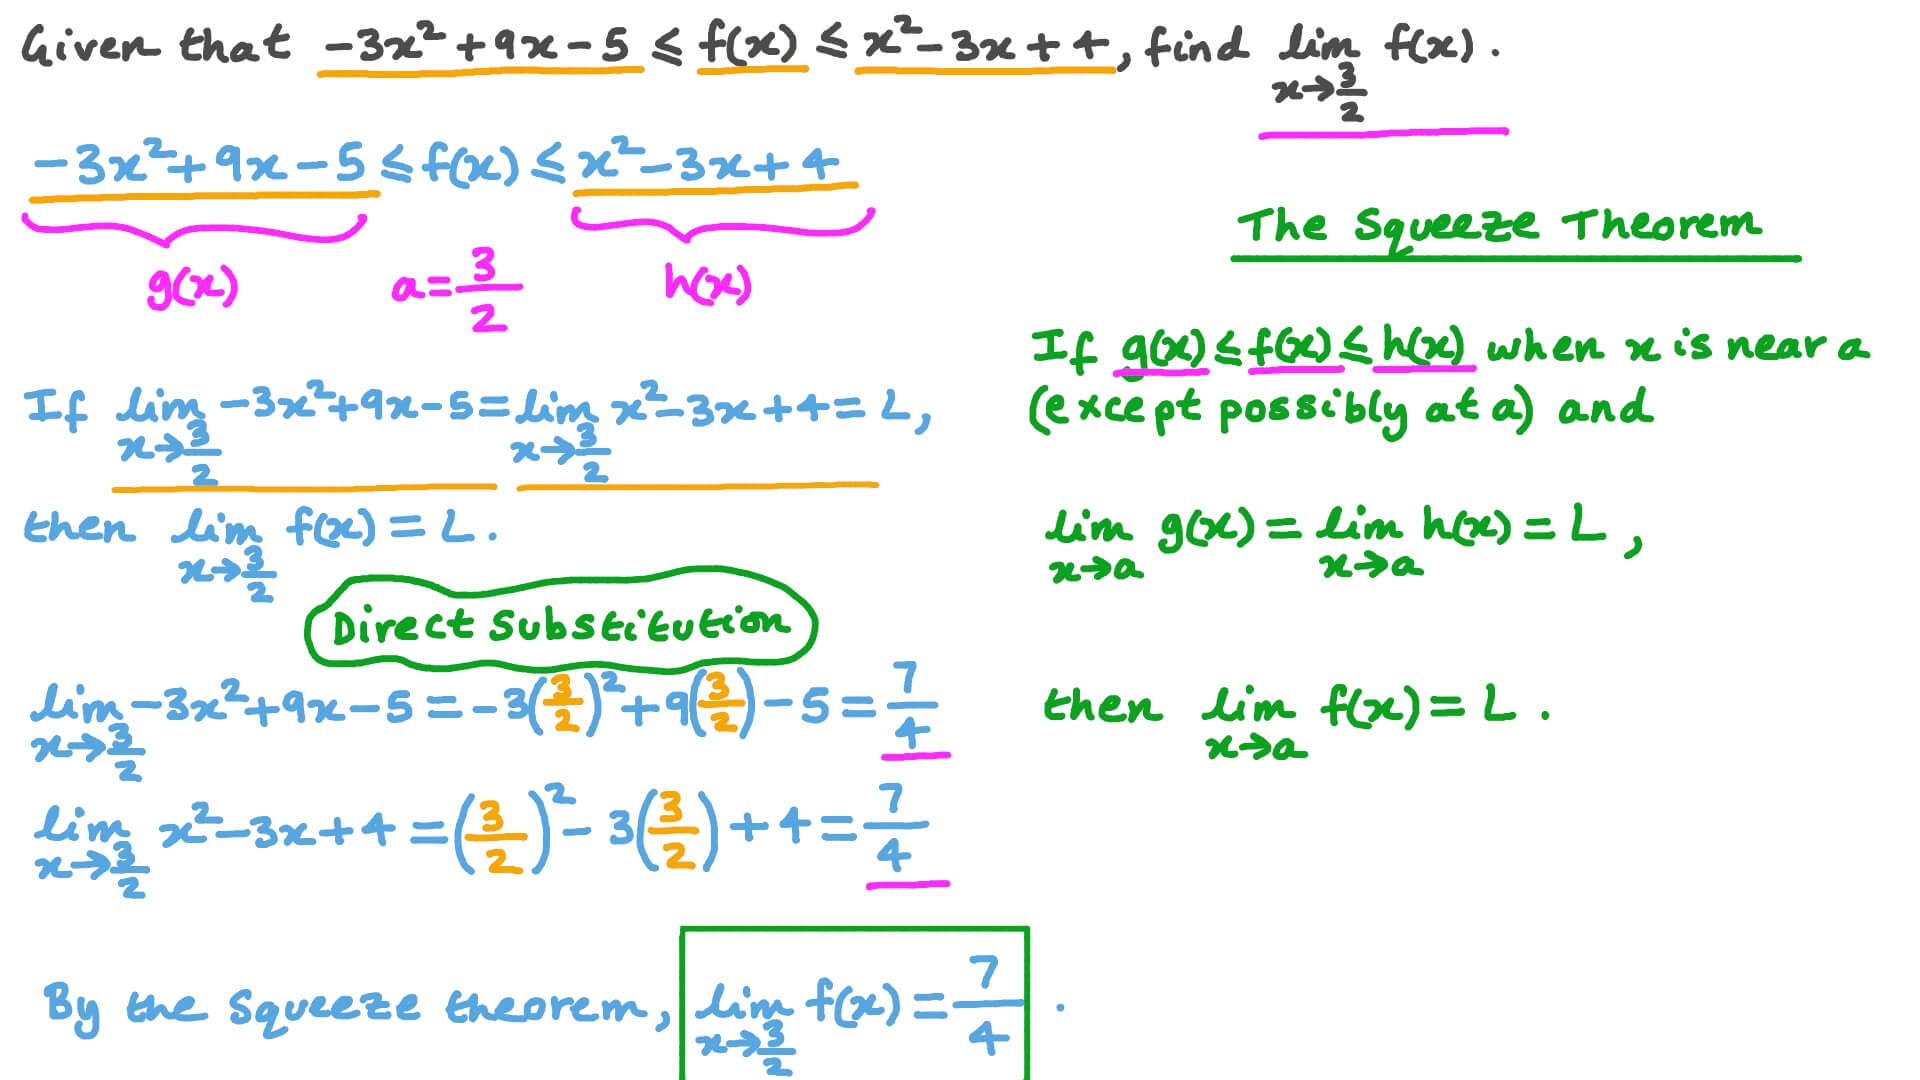 Given that −3x²+9x−5 ≤ f(x) ≤ x²−3x+4, find lim x→3/2 f(x).
−3x²+9x−5 ≤ f(x) ≤ x²−3x+4
g(x) a=3/2 h(x)
If lim x→3/2 −3x²+9x−5 = lim x→3/2 x²−3x+4 = L,
then lim x→3/2 f(x) = L.
Direct Substitution
lim x→3/2 −3x²+9x−5 = −3(3/2)²+9(3/2)−5 = 7/4
lim x→3/2 x²−3x+4 = (3/2)²−3(3/2)+4 = 7/4
By the Squeeze theorem, lim x→3/2 f(x) = 7/4.
The Squeeze Theorem
If g(x) ≤ f(x) ≤ h(x) when x is near a
(except possibly at a) and
lim x→a g(x) = lim x→a h(x) = L,
then lim x→a f(x) = L.